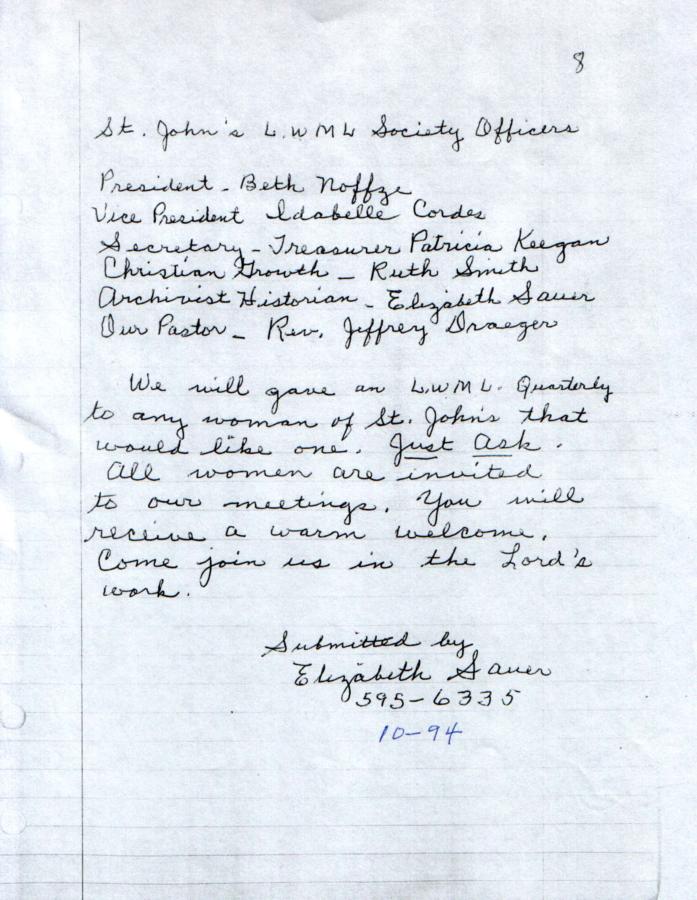 8
St. John's L.W M L Society Officers
President - Beth Noffze
Vice President Idabelle Cordes
Secretary - Treasurer Patricia Keegan
Christian Growth - Ruth Smith
Archivist Historian - Elizabeth Sauer
Our Pastor - Rev. Jeffrey Draeger
We will gave an L.W M L. Quarterly
to any woman of St. John's that
would like one. Just Ask.
All women are invited
to our meetings. You will
receive a warm welcome.
Come join us in the Lord's
work.
Submitted by
Elizabeth Sauer
595-6335
10-94